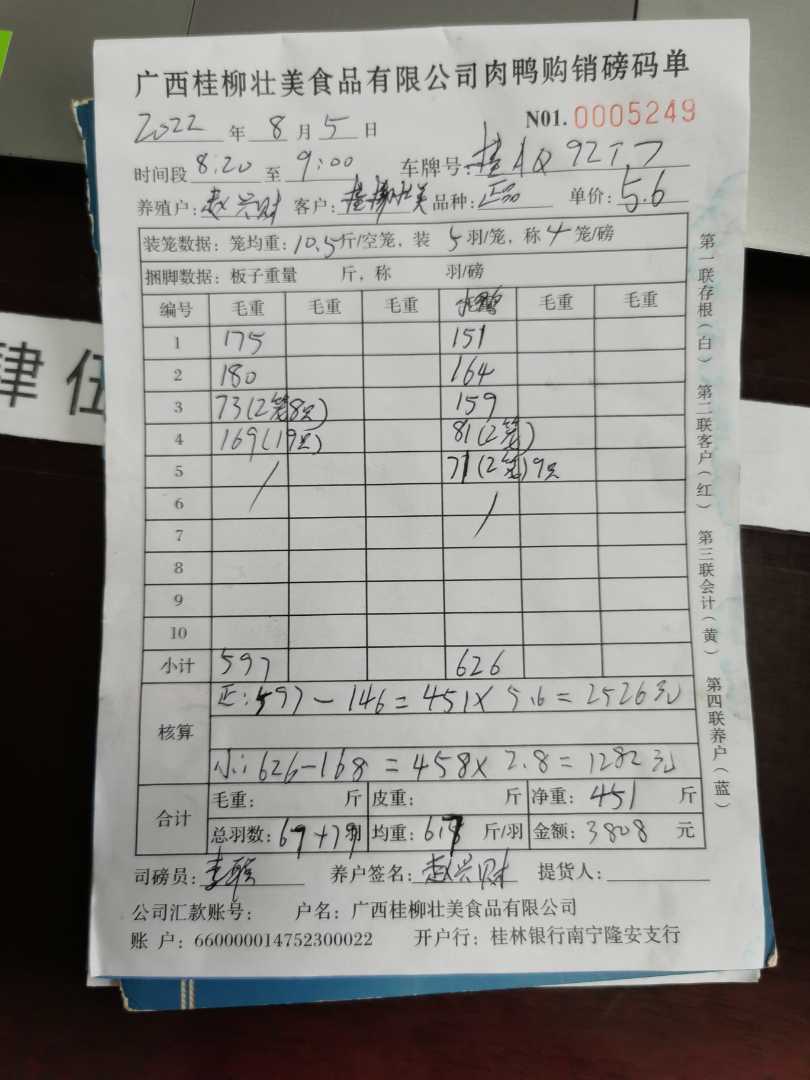 广西桂柳壮美食品有限公司肉鸭购销磅码单
2022 年 8 月 5 日 N01. 0005249
时间段 8:20 至 9:00 车牌号:桂AQ92T7
养殖户:赵兴财 客户:桂柳壮美 品种:正品 单价:5.6
装笼数据: 笼均重: 10.5斤/空笼, 装 5 羽/笼, 称 4 笼/磅
捆脚数据: 板子重量 斤, 称 羽/磅
编号 毛重 毛重 毛重 毛重 毛重
1 175 151
2 180 164
3 73(2笼8只) 159
4 169(19只) 81(2笼)
5 / 71(2笼)9只
6 /
7
8
9
10
小计 597 626
核算
正:597-146=451×5.6=2526元
小:626-168=458×2.8=1282元
合计
毛重: 斤 皮重: 斤 净重: 451 斤
总羽数:67+79羽 均重:6.73 斤/羽 金额:3808 元
司磅员: 养户签名:赵兴财 提货人:
公司汇款账号: 户名:广西桂柳壮美食品有限公司
账 户: 660000014752300022 开户行: 桂林银行南宁隆安支行
第一联存根(白) 第二联客户(红) 第三联会计(黄) 第四联养户(蓝)
肆伍